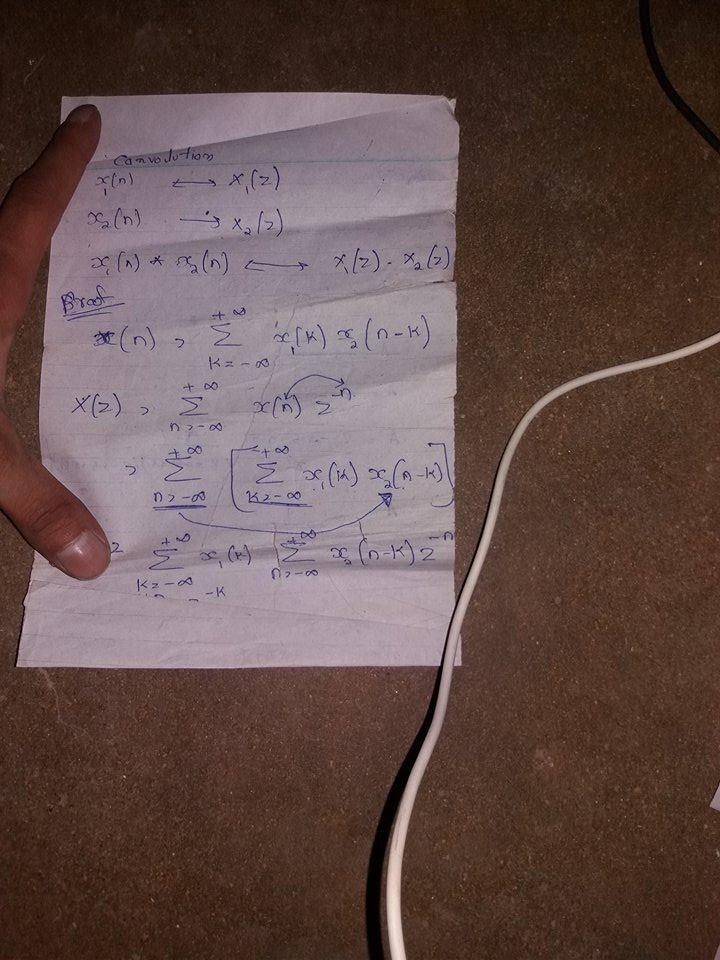 Convolution
x₁(n) ↔ X₁(z)
x₂(n) → X₂(z)
x₁(n) * x₂(n) ↔ X₁(z) - X₂(z)
Proof
x(n) = +∞ Σ k=-∞ x₁(k) x₂(n-k)
X(z) = +∞ Σ n=-∞ x(n) z⁻ⁿ
= +∞ Σ n=-∞ [ +∞ Σ k=-∞ x₁(k) x₂(n-k) ]
= +∞ Σ k=-∞ x₁(k) +∞ Σ n=-∞ x₂(n-k) z⁻ⁿ
-k